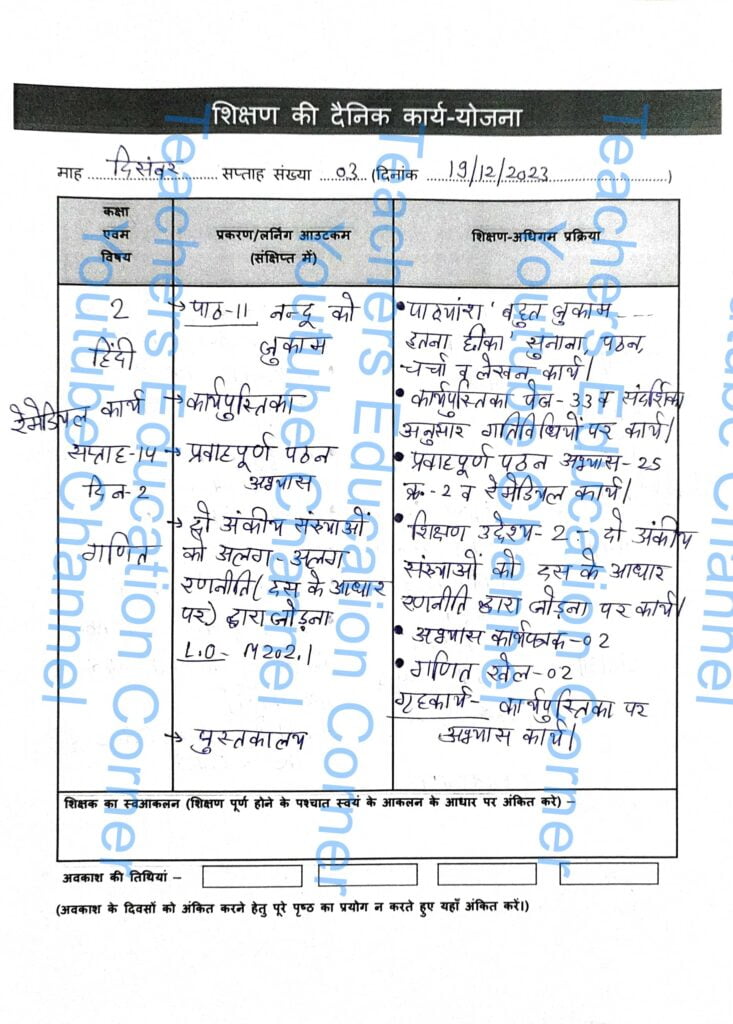 शिक्षण की दैनिक कार्य-योजना
माह ... दिसंबर ... सप्ताह संख्या ...03.. (दिनांक ...19/12/2023...)
कक्षा
एवम
विषय
प्रकरण/लर्निंग आउटकम
(संक्षिप्त में)
शिक्षण-अधिगम प्रक्रिया
2
हिंदी
रेमेडियल कार्य
सप्ताह-14
दिन-2
गणित
→ पाठ-11 नन्दू को
जुकाम
→ कार्यपुस्तिका
→ प्रवाहपूर्ण पठन
अभ्यास
→ दो अंकीय संख्याओं
को अलग-अलग
रणनीति (दस के आधार
पर) द्वारा जोड़ना
L.O- M202.1
→ पुस्तकालय
• पाठ्यांश 'बहुत जुकाम ---
इतना छींका' सुनाना, पठन,
चर्चा व लेखन कार्य।
• कार्यपुस्तिका पेज-33 व संदर्शिका
अनुसार गतिविधियों पर कार्य।
• प्रवाहपूर्ण पठन अभ्यास-25
क्र-2 व रेमेडियल कार्य।
• शिक्षण उद्देश्य-2- दो अंकीय
संख्याओं को दस के आधार
रणनीति द्वारा जोड़ना पर कार्य।
• अभ्यास कार्यपत्रक-02
• गणित खेल-02
गृहकार्य- कार्यपुस्तिका पर
अभ्यास कार्य।
शिक्षक का स्वआकलन (शिक्षण पूर्ण होने के पश्चात स्वयं के आकलन के आधार पर अंकित करे) –
अवकाश की तिथियां –
(अवकाश के दिवसों को अंकित करने हेतु पूरे पृष्ठ का प्रयोग न करते हुए यहाँ अंकित करें।)
Teachers Education Corner
Youtube Channel
Teachers Education Corner
Youtube Channel
Teachers Education Corner
Youtube Channel